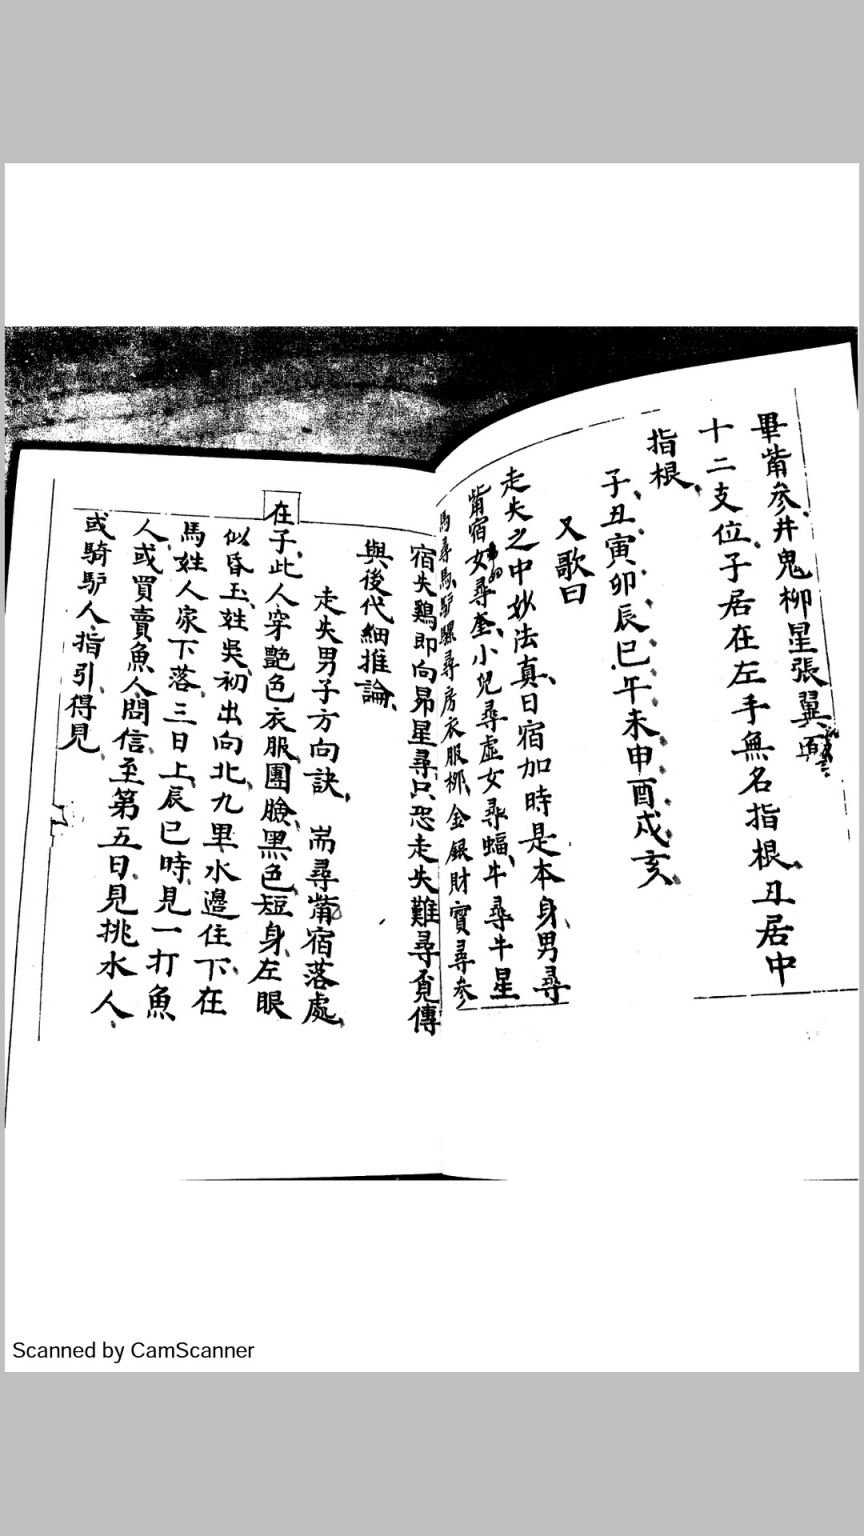 畢觜參井鬼柳星張翼
十二支位子居在左手無名指根丑居中
指根
子丑寅卯辰巳午未申酉戌亥
又歌曰
走失之中妙法真日宿加時是本身男尋
觜宿女尋奎小兒尋虛女尋蝠牛尋牛星
馬尋馬驴騾尋房衣服柳金銀財寳尋参
宿失鷄即向昴星尋只恐走失難尋覓傳
與後代細推論
走失男子方向訣 耑尋觜宿落處
在子此人穿艷色衣服團臉黑色短身左眼
似昏玉姓吳初出向北九里水邊住下在
馬姓人家下落三日上辰巳時見一打魚
人或買賣魚人問信至第五日見挑水人
或騎驴人指引得見
Scanned by CamScanner